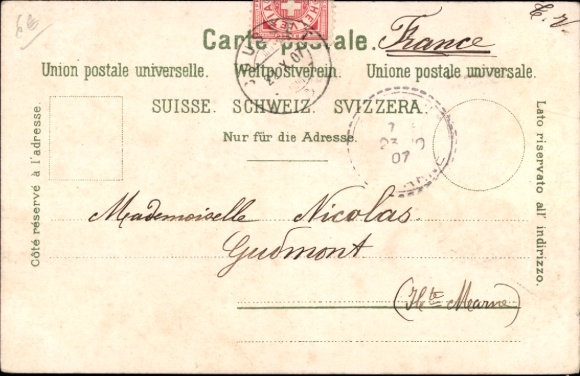 6€
T. V.
HELVETIA
Carte postale. France
Union postale universelle. Weltpostverein. Unione postale universale.
SUISSE. SCHWEIZ. SVIZZERA.
Nur für die Adresse.
Côté réservé à l'adresse.
Lato riservato all' indirizzo.
07
Mademoiselle Nicolas.
Gudmont
(Hte Marne)